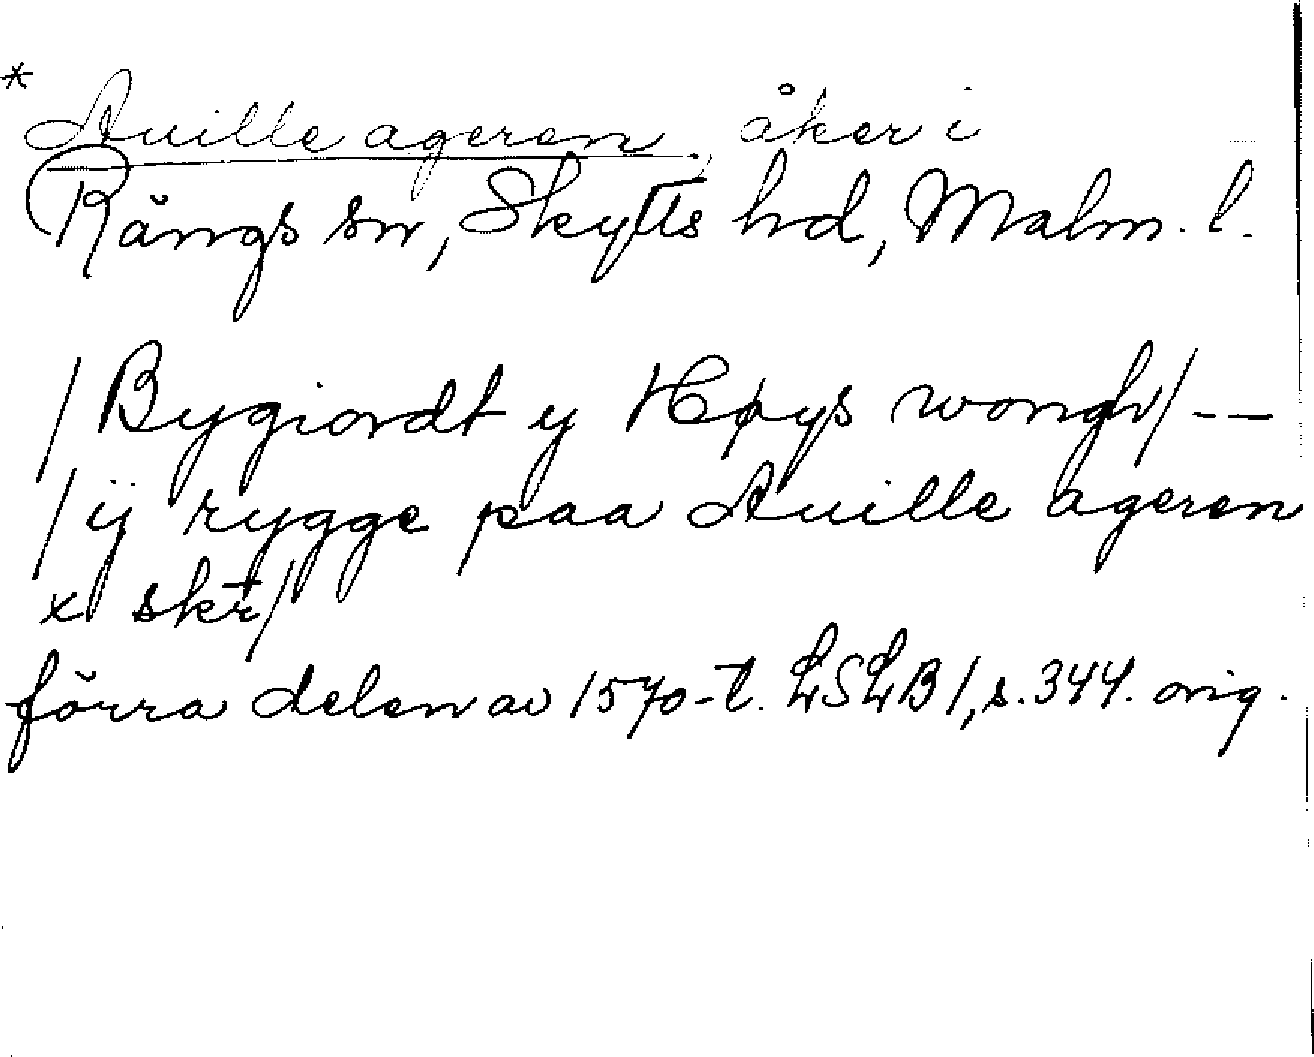 * Auille ageren, åker i
Rängs sn, Skytts hd, Malm. l.
/Bygiordt y Høys wongh/ --
/ ij rygge paa Auille ageren
x skr̄/
förra delen av 1570-t. LSLB 1, s. 344. orig.